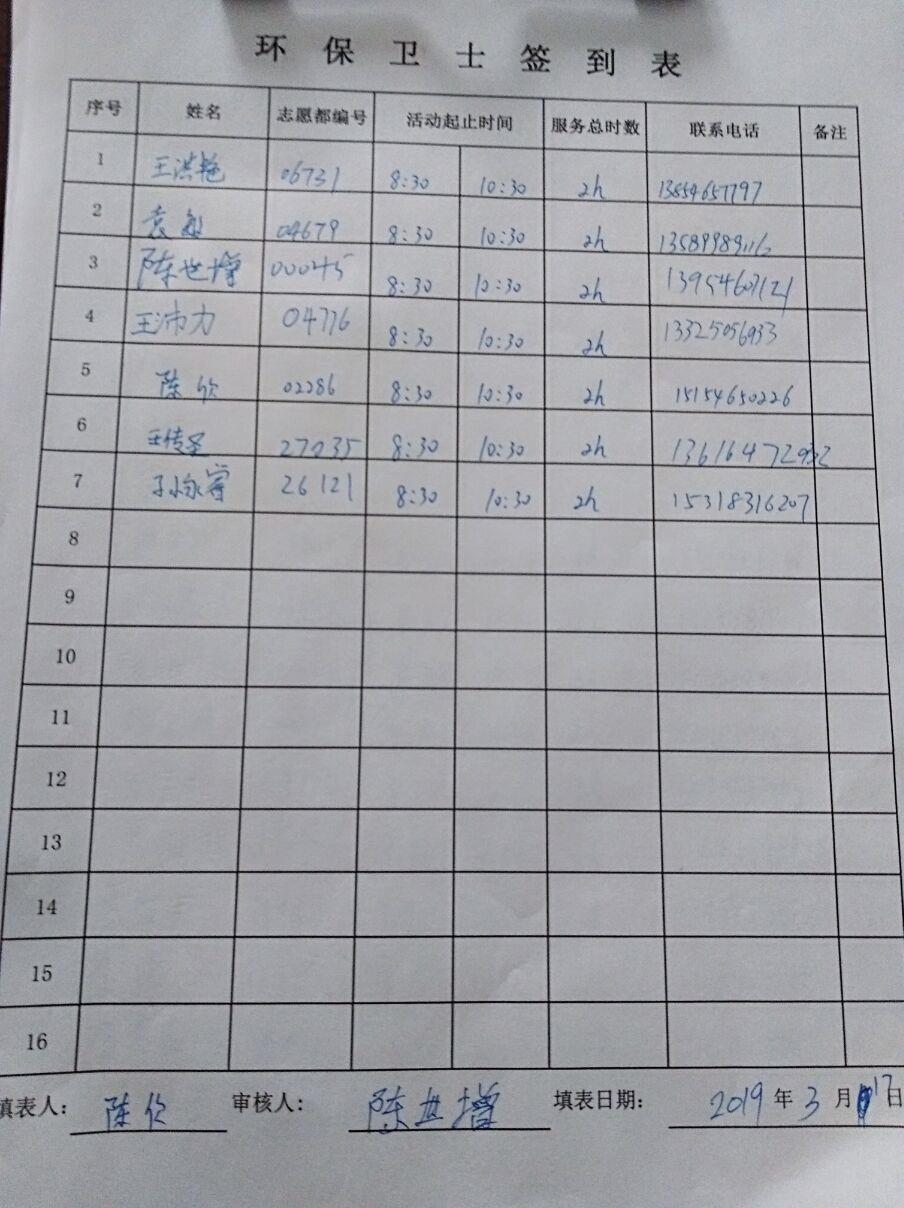 环保卫士签到表
序号 姓名 志愿都编号 活动起止时间 服务总时数 联系电话 备注
1 王洪艳 06731 8:30 10:30 2h 13854657797
2 袁 04679 8:30 10:30 2h
3 陈世增 00045 8:30 10:30 2h 13954607121
4 王沛力 04776 8:30 10:30 2h 13325056933
5 陈 02286 8:30 10:30 2h 15154650226
6 王传圣 27035 8:30 10:30 2h
7 孙永 26121 8:30 10:30 2h 15318316207
8
9
10
11
12
13
14
15
16
填表人: 陈 审核人: 陈世增 填表日期: 2019年3月17日